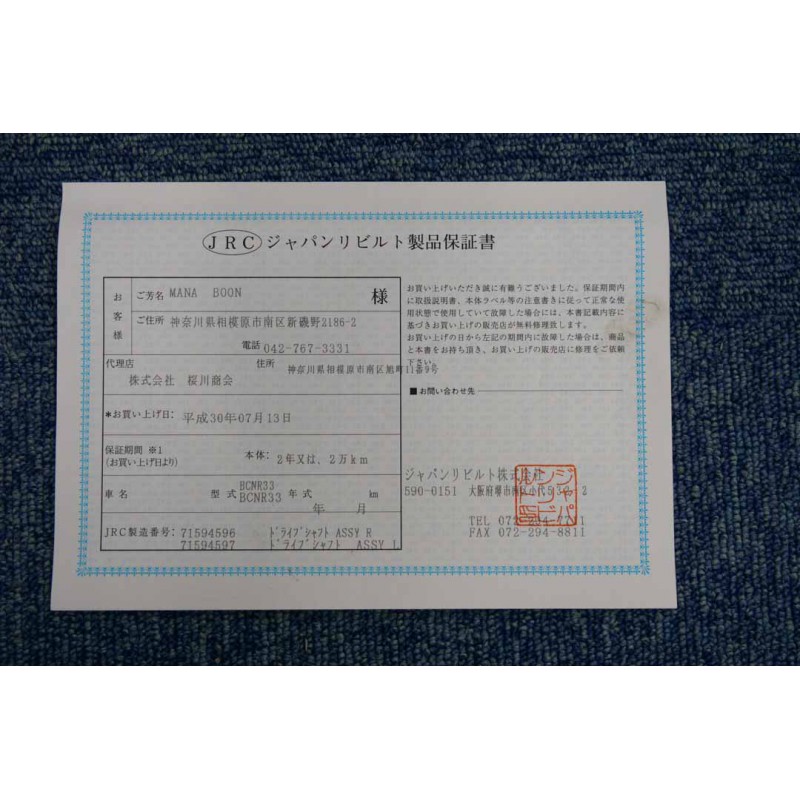 JRC ジャパンリビルト製品保証書
お客様
ご芳名 MANA BOON 様
ご住所 神奈川県相模原市南区新磯野2186-2
電話 042-767-3331
代理店 住所 神奈川県相模原市南区旭町11番9号
株式会社 桜川商会
*お買い上げ日: 平成30年07月13日
保証期間 ※1
(お買い上げ日より)
本体: 2年又は、2万km
BCNR33
車名 型式 BCNR33 年式 km
年 月
JRC製造番号: 71594596 ドライブシャフト ASSY R
71594597 ドライブシャフト ASSY L
お買い上げいただき誠に有難うございました。保証期間内
に取扱説明書、本体ラベル等の注意書きに従って正常な使
用状態で使用していて故障した場合には、本書記載内容に
基づきお買い上げの販売店が無料修理致します。
お買い上げの日から左記の期間内に故障した場合は、商品
と本書をお持ち頂き、お買い上げの販売店に修理をご依頼
下さい。
■お問い合わせ先
ジャパンリビルト株式会社
590-0151 大阪府堺市南区小代
TEL 072
FAX 072-294-8811
ジャパンリビルト